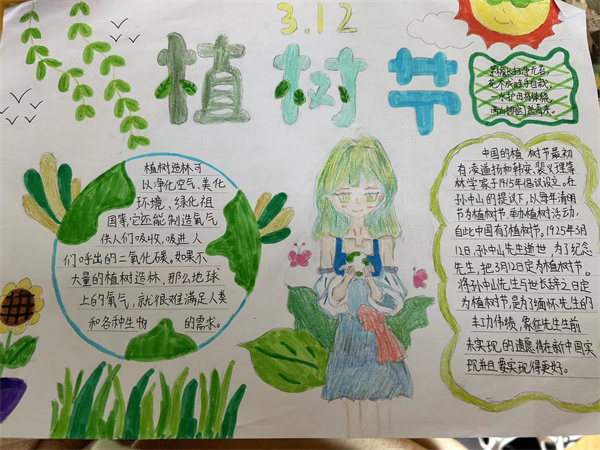 3.12
植树节
茅檐长扫净无苔，
花木成畦手自栽。
一水护田将绿绕，
两山排闼送青来。
植树造林可
以净化空气、美化
环境、绿化祖
国等，它还能制造氧气
供人们吸收，吸进人
们呼出的二氧化碳。如果不
大量的植树造林，那么地球
上的氧气，就很难满足人类
和各种生物的需求。
中国的植树节最初
有凌道扬和韩安、裴义理等
林学家于1915年倡议设立。在
孙中山的提议下，以每年清明
节为植树节，举办植树活动，
自此中国有了植树节。1925年3月
12日，孙中山先生逝世，为了纪念
先生，把3月12日定为植树节。
将孙中山先生与世长辞之日定
为植树节，是为了缅怀先生的
丰功伟绩，象征先生生前
未实现的遗愿将在新中国实
现并且要实现得更好。